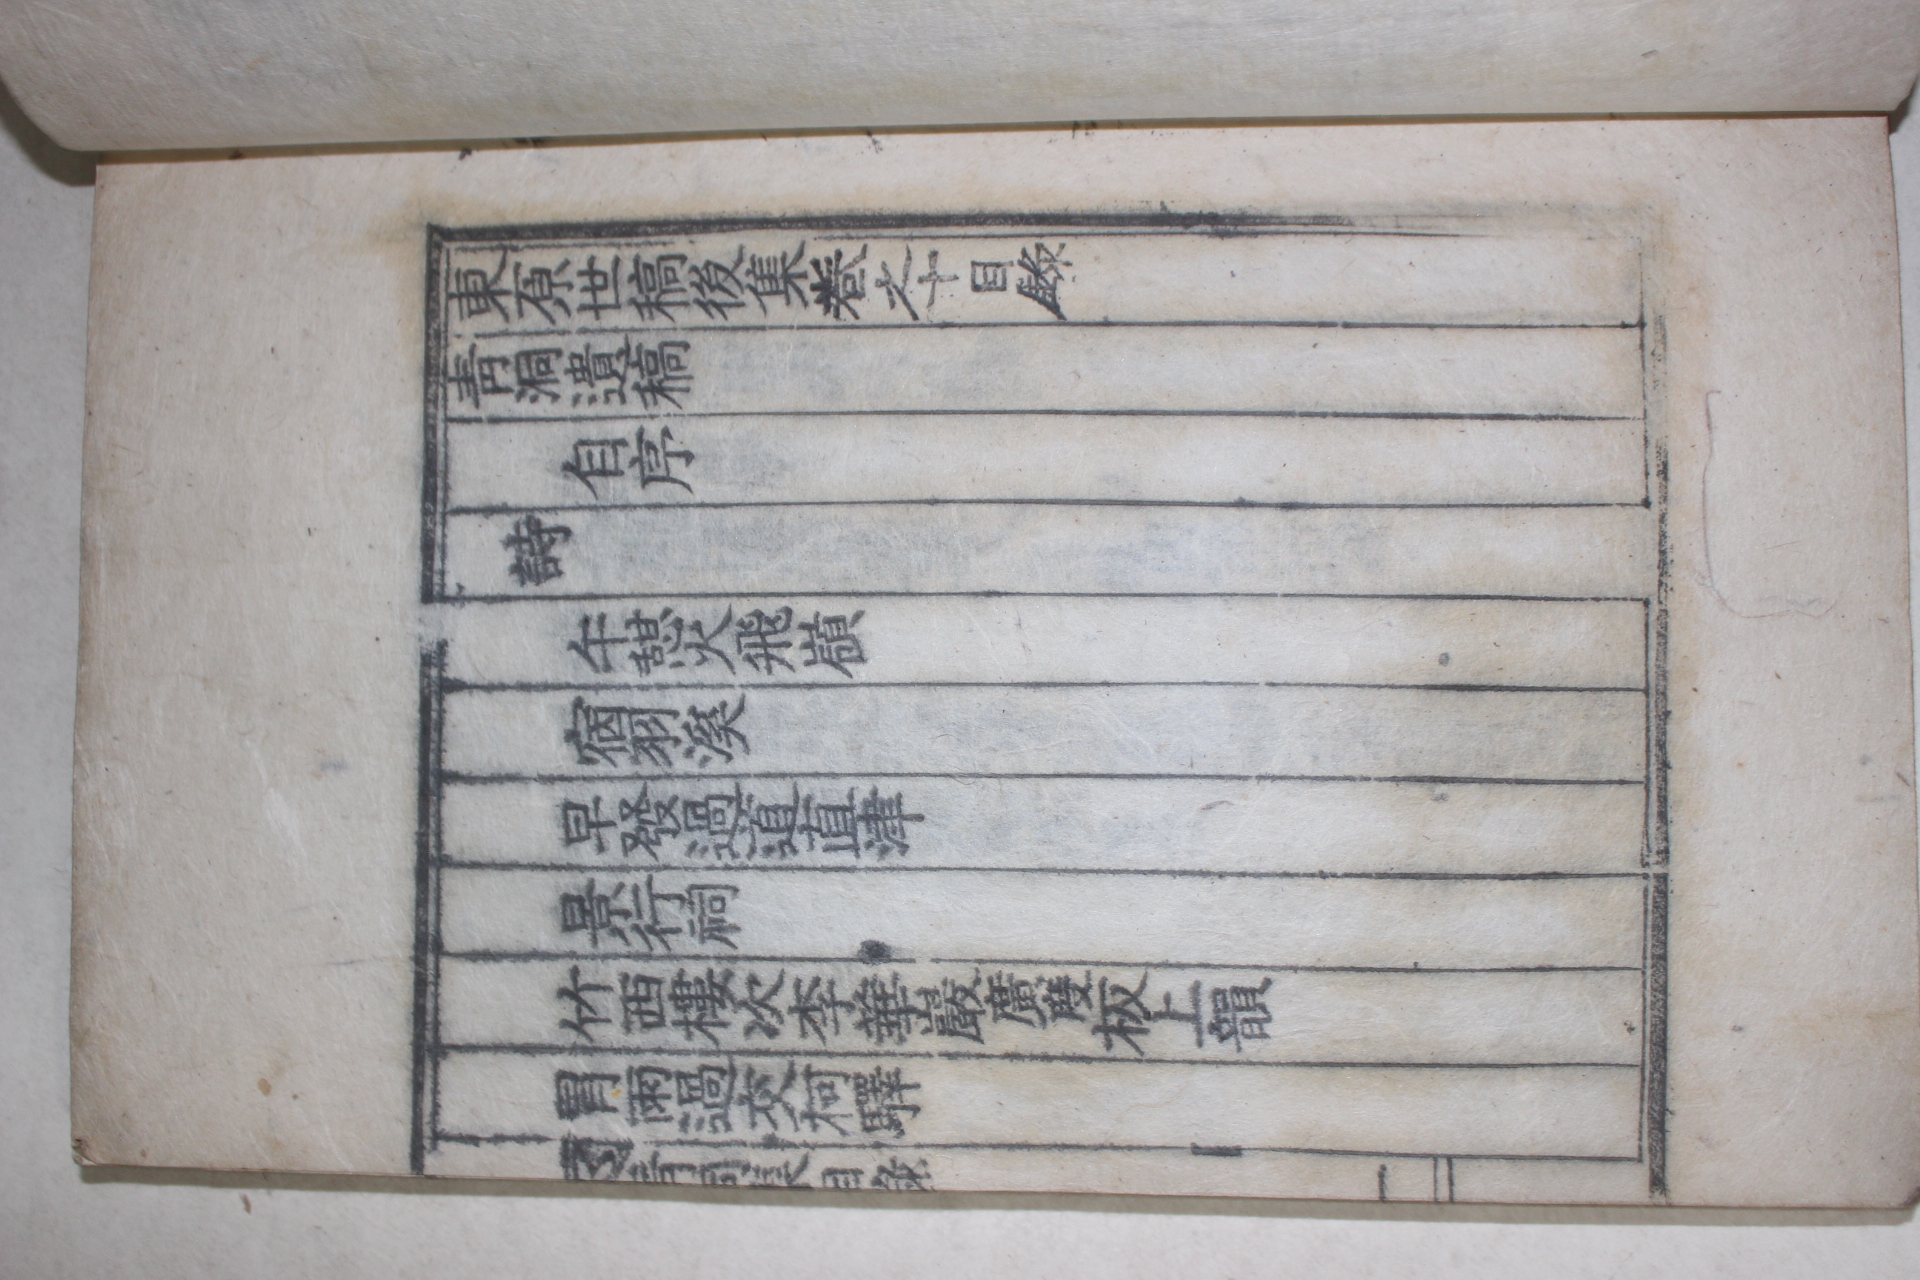 東原世稿後集卷之十目錄
青洞遺稿
自序
詩
午憇火飛嶺
宿羽溪
早發過道直津
景行祠
竹西樓次李華嚴廣度板上韻
冒雨過交柯驛